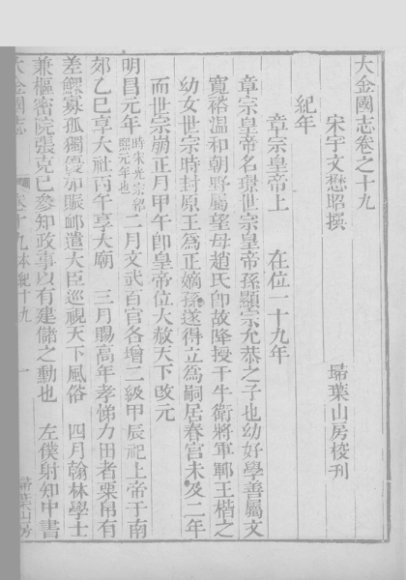 大金國志卷之十九
宋宇文懋昭撰　埽葉山房校刊
紀年
章宗皇帝上　在位一十九年
章宗皇帝名璟世宗皇帝孫顯宗允恭之子也幼好學善屬文
寬裕温和朝野屬望母趙氏卽故降授千牛衛將軍鄆王楷之
幼女世宗時封原王爲正嫡孫遂得立爲嗣居春宫未及二年
而世宗崩正月甲午卽皇帝位大赦天下改元
明昌元年時宋光宗紹熙元年也二月文武百官各增二級甲辰祀上帝于南
郊乙巳享大社丙午享大廟　三月賜高年孝悌力田者粟帛有
差鰥寡孤獨優加賑卹遣大臣巡視天下風俗　四月翰林學士
兼樞密院張克已參知政事以有建儲之勳也　左僕射知中書
大金國志　卷十九本紀十九　一　埽葉山房